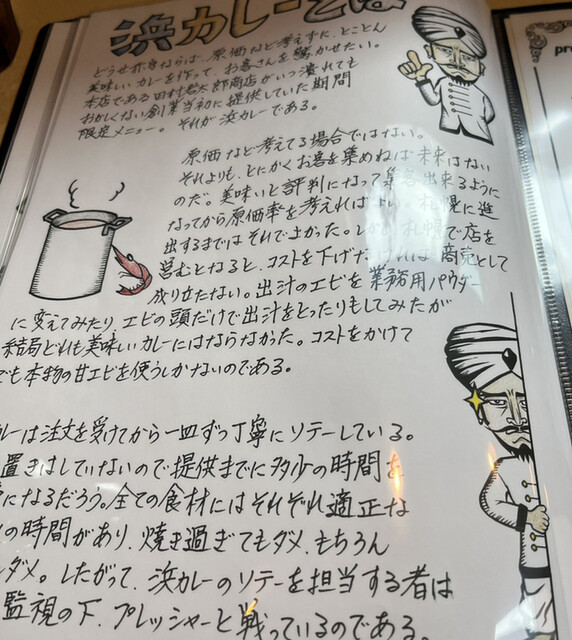 浜カレーとは
どうせ赤字ならば、原価など考えずに、とことん
美味しいカレーを作って、お客さんを驚かせたい。
本店である田村岩太郎商店がいつ潰れても
おかしくない創業当初に提供していた期間
限定メニュー。それが浜カレーである。
原価など考えてる場合ではない。
それよりも、とにかくお客を集めねば未来はない
のだ。美味いと評判になって集客出来るように
なってから原価率を考えればよい。札幌に進
出するまではそれでよかった。しかし、札幌で店を
営むとなると、コストを下げなければ商売として
成り立たない。出汁のエビを業務用パウダー
に変えてみたり、エビの頭だけで出汁をとったりもしてみたが
結局どれも美味しいカレーにはならなかった。コストをかけて
でも本物の甘エビを使うしかないのである。
カレーは注文を受けてから一皿ずつ丁寧にソテーしている。
置きはしていないので提供までに多少の時間を
になるだろう。全ての食材にはそれぞれ適正な
の時間があり、焼き過ぎてもダメ、もちろん
ダメ。したがって、浜カレーのソテーを担当する者は
監視の下、プレッシャーと戦っているのである。
pr